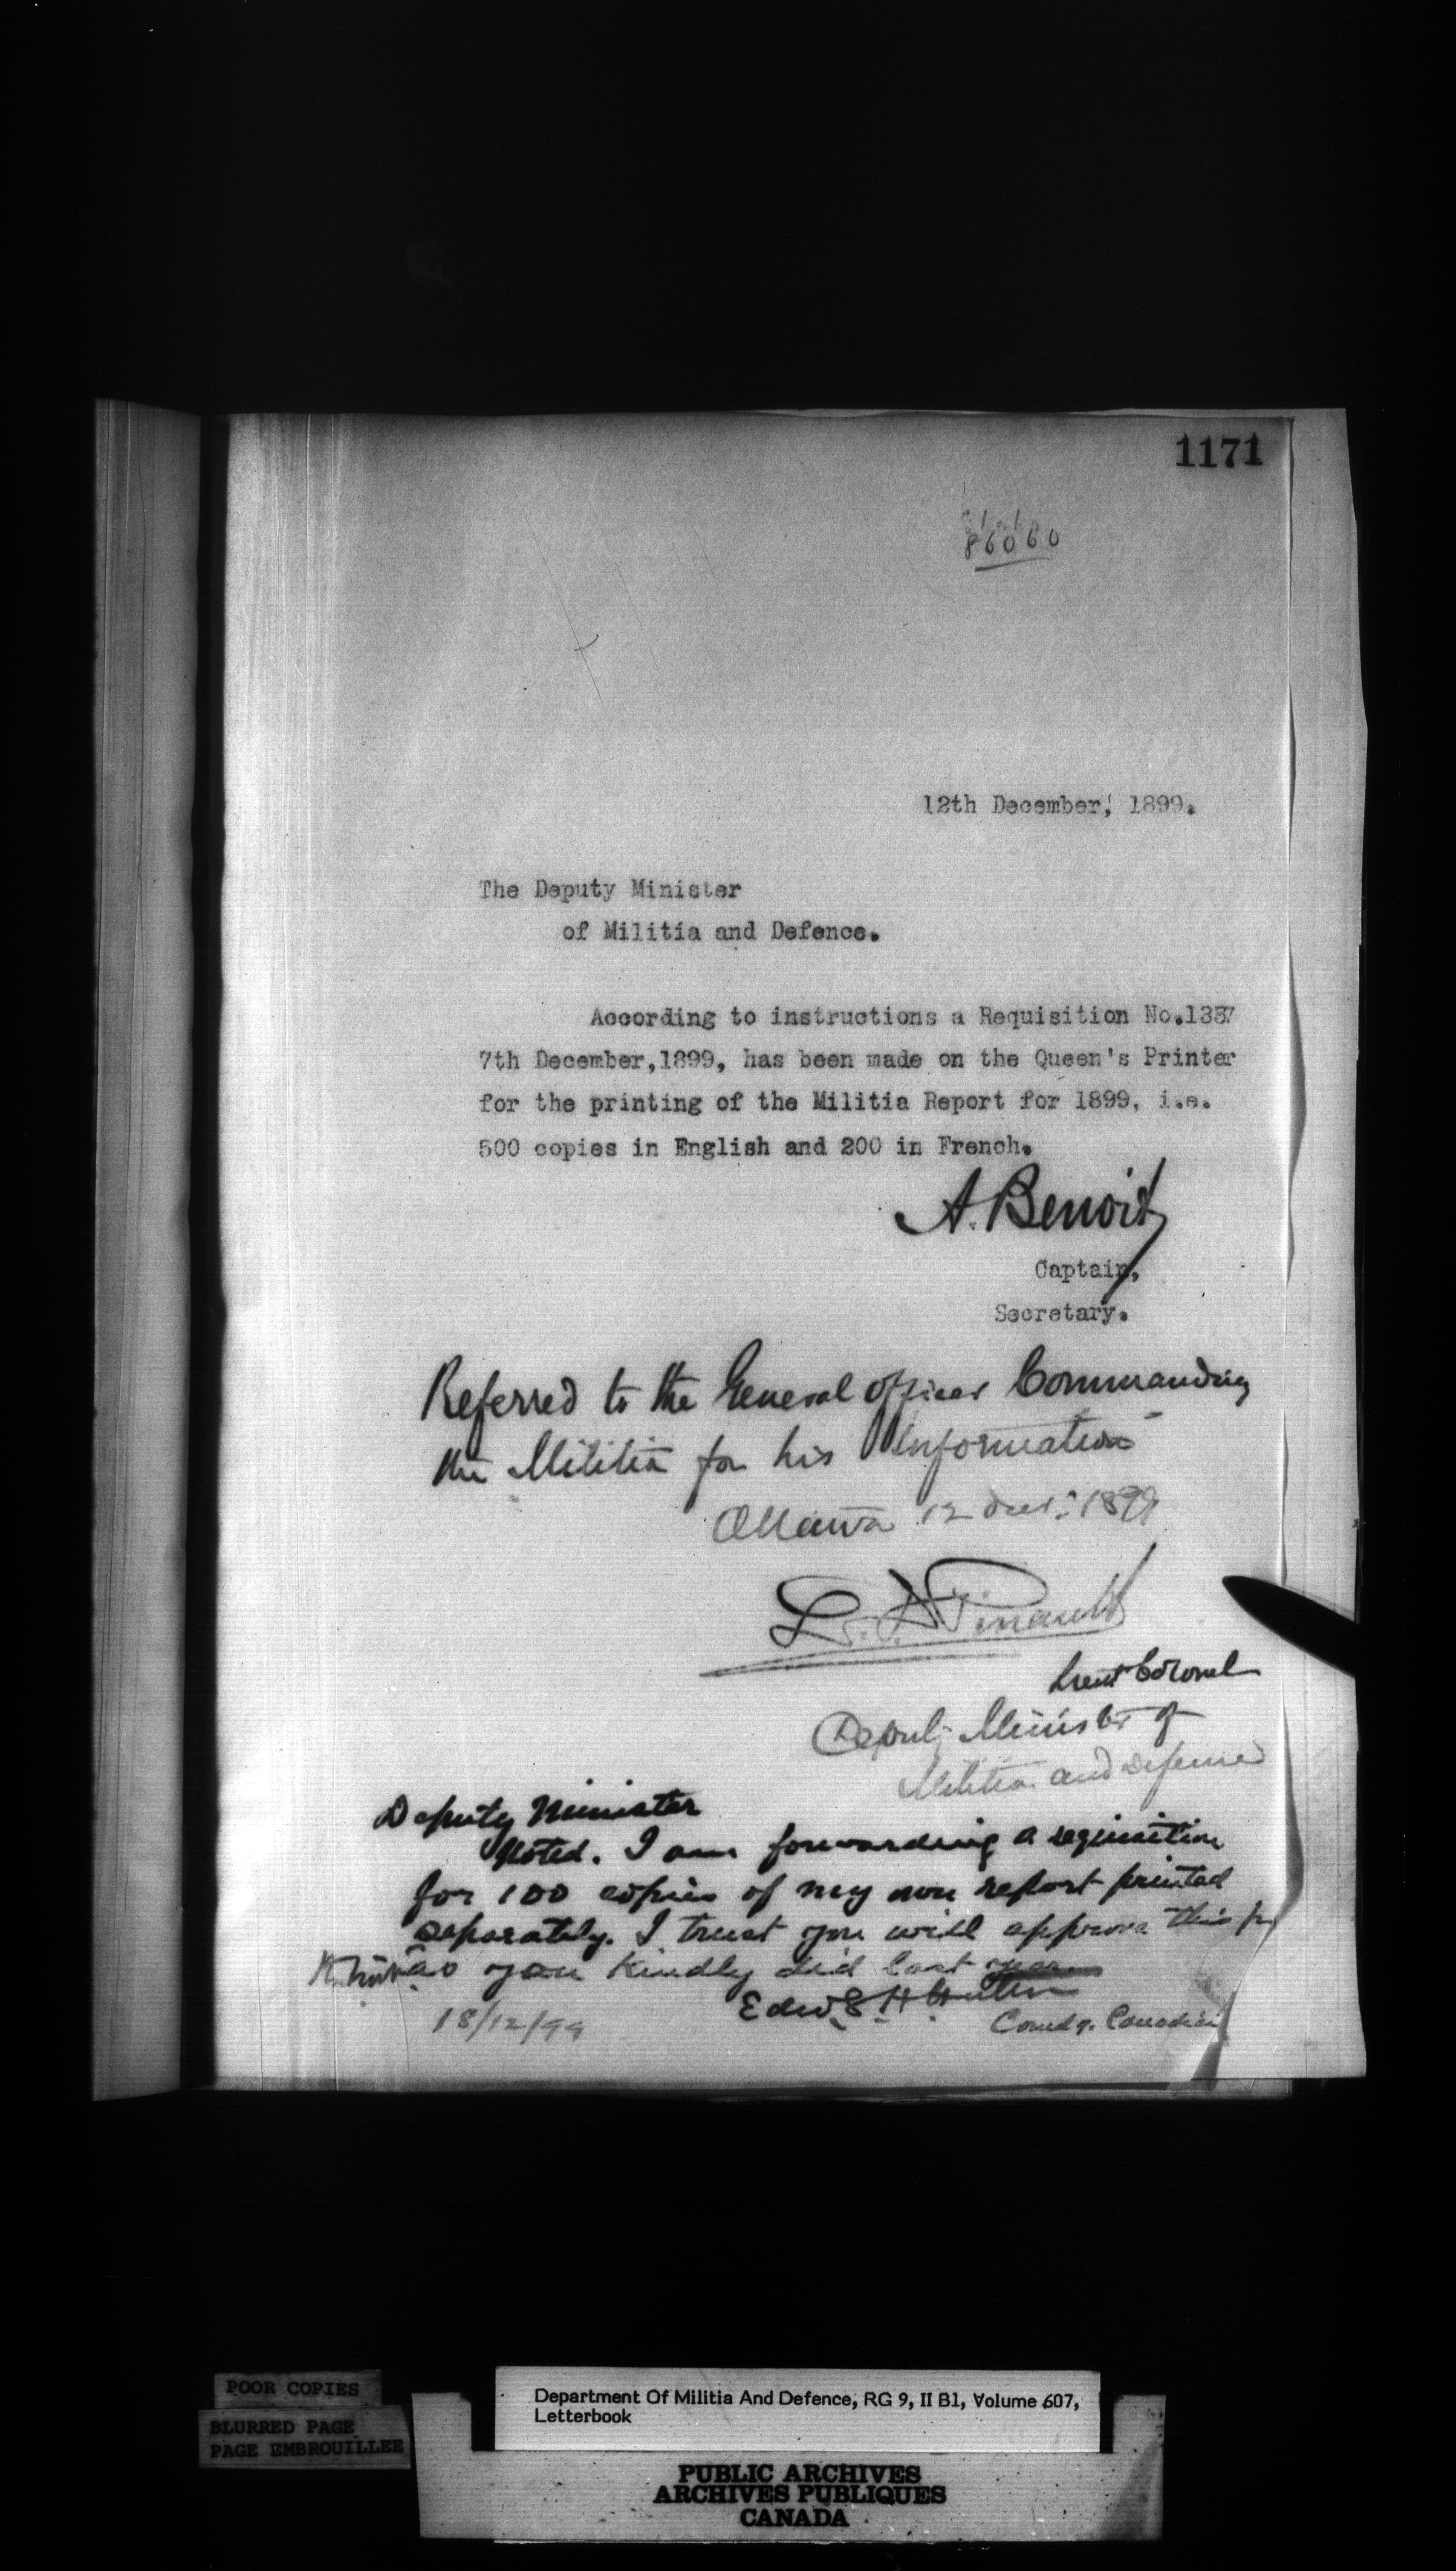 1171
86060
12th December, 1899.
The Deputy Minister
of Militia and Defence.
According to instructions a Requisition No.1357
7th December,1899, has been made on the Queen's Printer
for the printing of the Militia Report for 1899, i.e.
500 copies in English and 200 in French.
A. Benoit
Captain,
Secretary.
Referred to the General Officer Commanding
the Militia for his Information
Ottawa 12 Dec. 1899
L. F. Pinault
Lieut Colonel
Deputy Minister of
Militia and Defence
Deputy Minister
Noted. I am forwarding a requisition
for 100 copies of my own report printed
separately. I trust you will approve this
as you kindly did last year
Edw. T. H. Hutton
18/12/99
Comdg. Canadian
POOR COPIES
BLURRED PAGE
PAGE EMBROUILLEE
Department Of Militia And Defence, RG 9, II B1, Volume 607,
Letterbook
PUBLIC ARCHIVES
ARCHIVES PUBLIQUES
CANADA